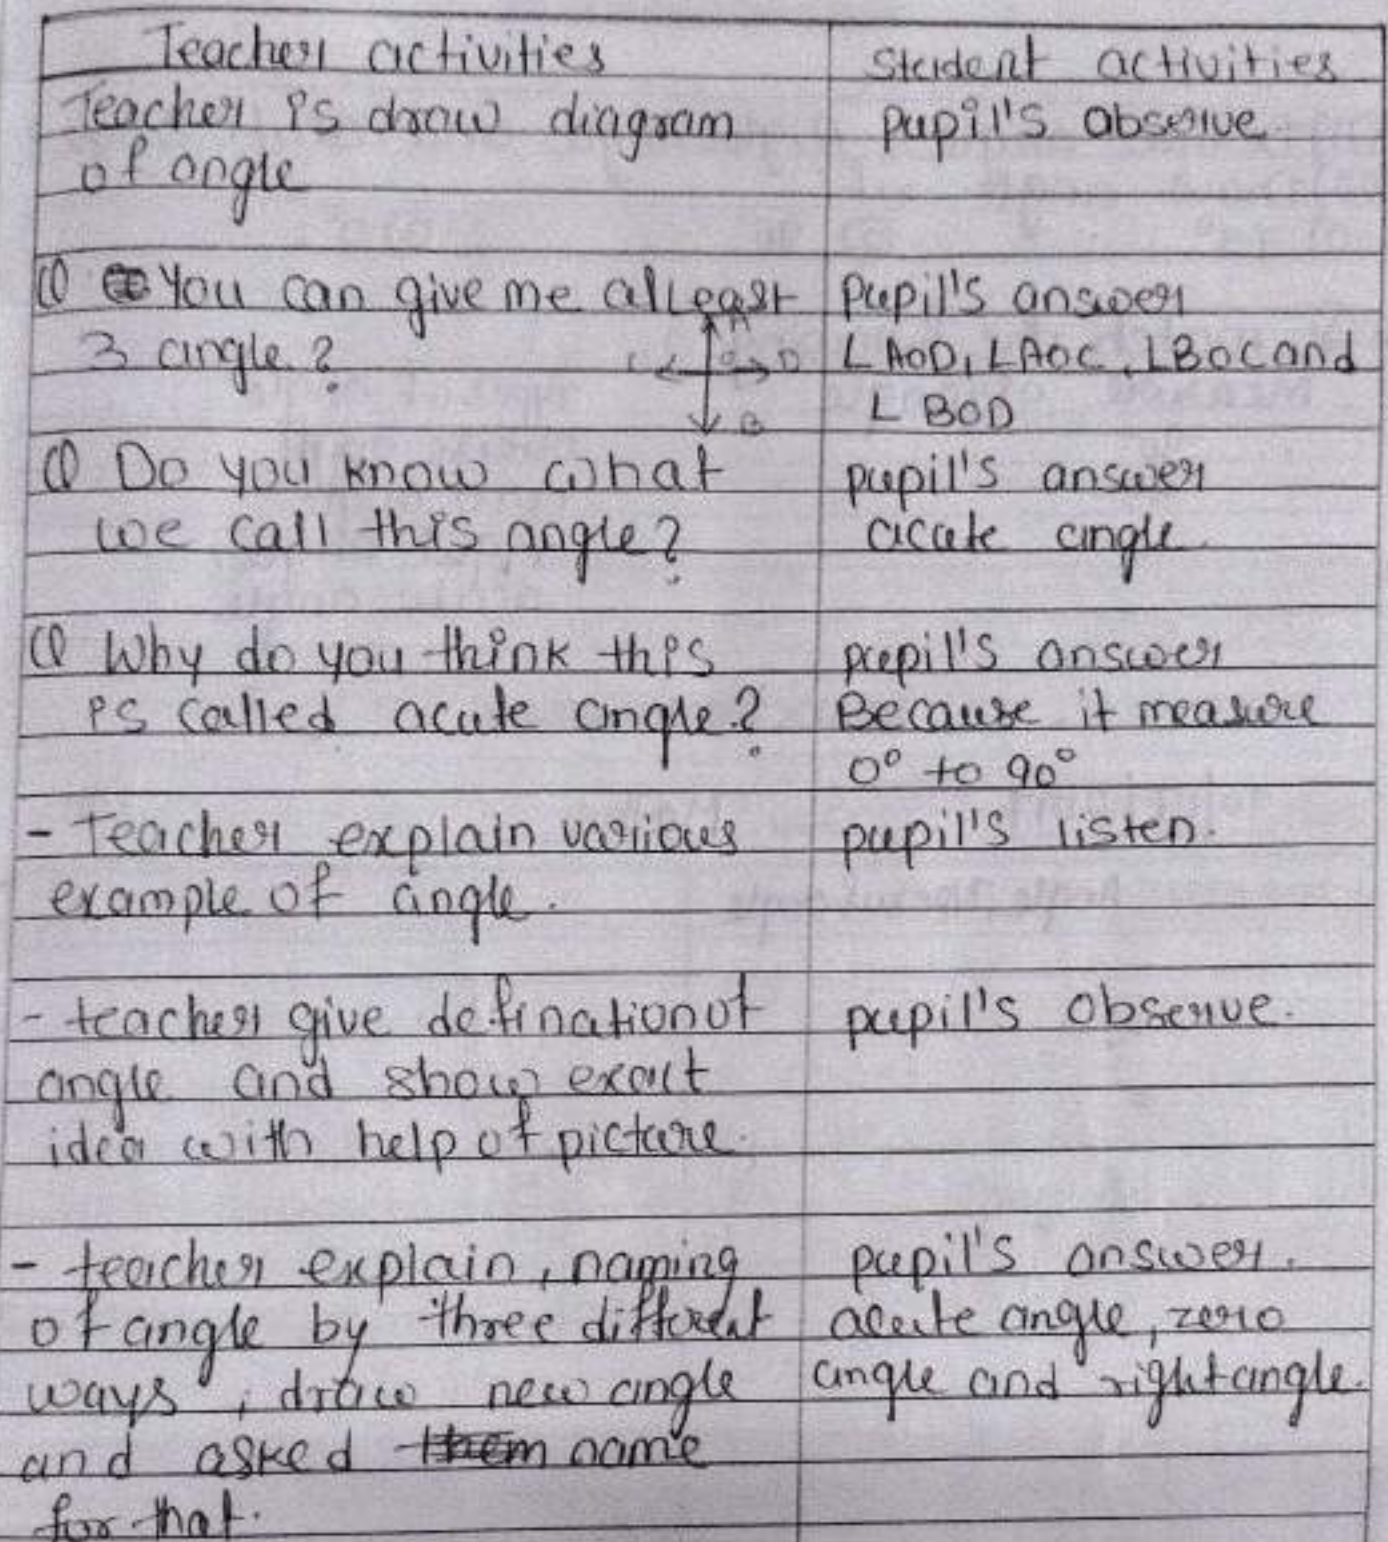 Teacher activities
Student activities
Teacher is draw diagram
of angle
pupil's observe
Q You can give me atleast
3 angle?
A
C O D
B
pupil's answer
∠AOD, ∠AOC, ∠BOC and
∠BOD
Q Do you know what
we call this angle?
pupil's answer
acute angle.
Q Why do you think this
is called acute angle?
pupil's answer
Because it measure
0° to 90°
- Teacher explain various
example of angle.
pupil's listen.
- teacher give defination of
angle and show exact
idea with help of picture.
pupil's observe.
- teacher explain, naming
of angle by three different
ways, draw new angle
and asked them name
for that.
pupil's answer.
acute angle, zero
angle and right angle.